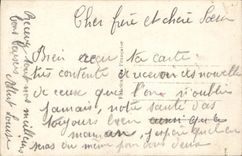 Cher frère et chère Sœur
Bien reçu ta carte
très contente de recevoir des nouvelles
de ceux que l'on n'oublie
jamais, notre santé
toujours bien ainsi que
maman, j'espère qu'il en
sera du même pour vous deux
Recevez tous nos meilleurs
bons baisers